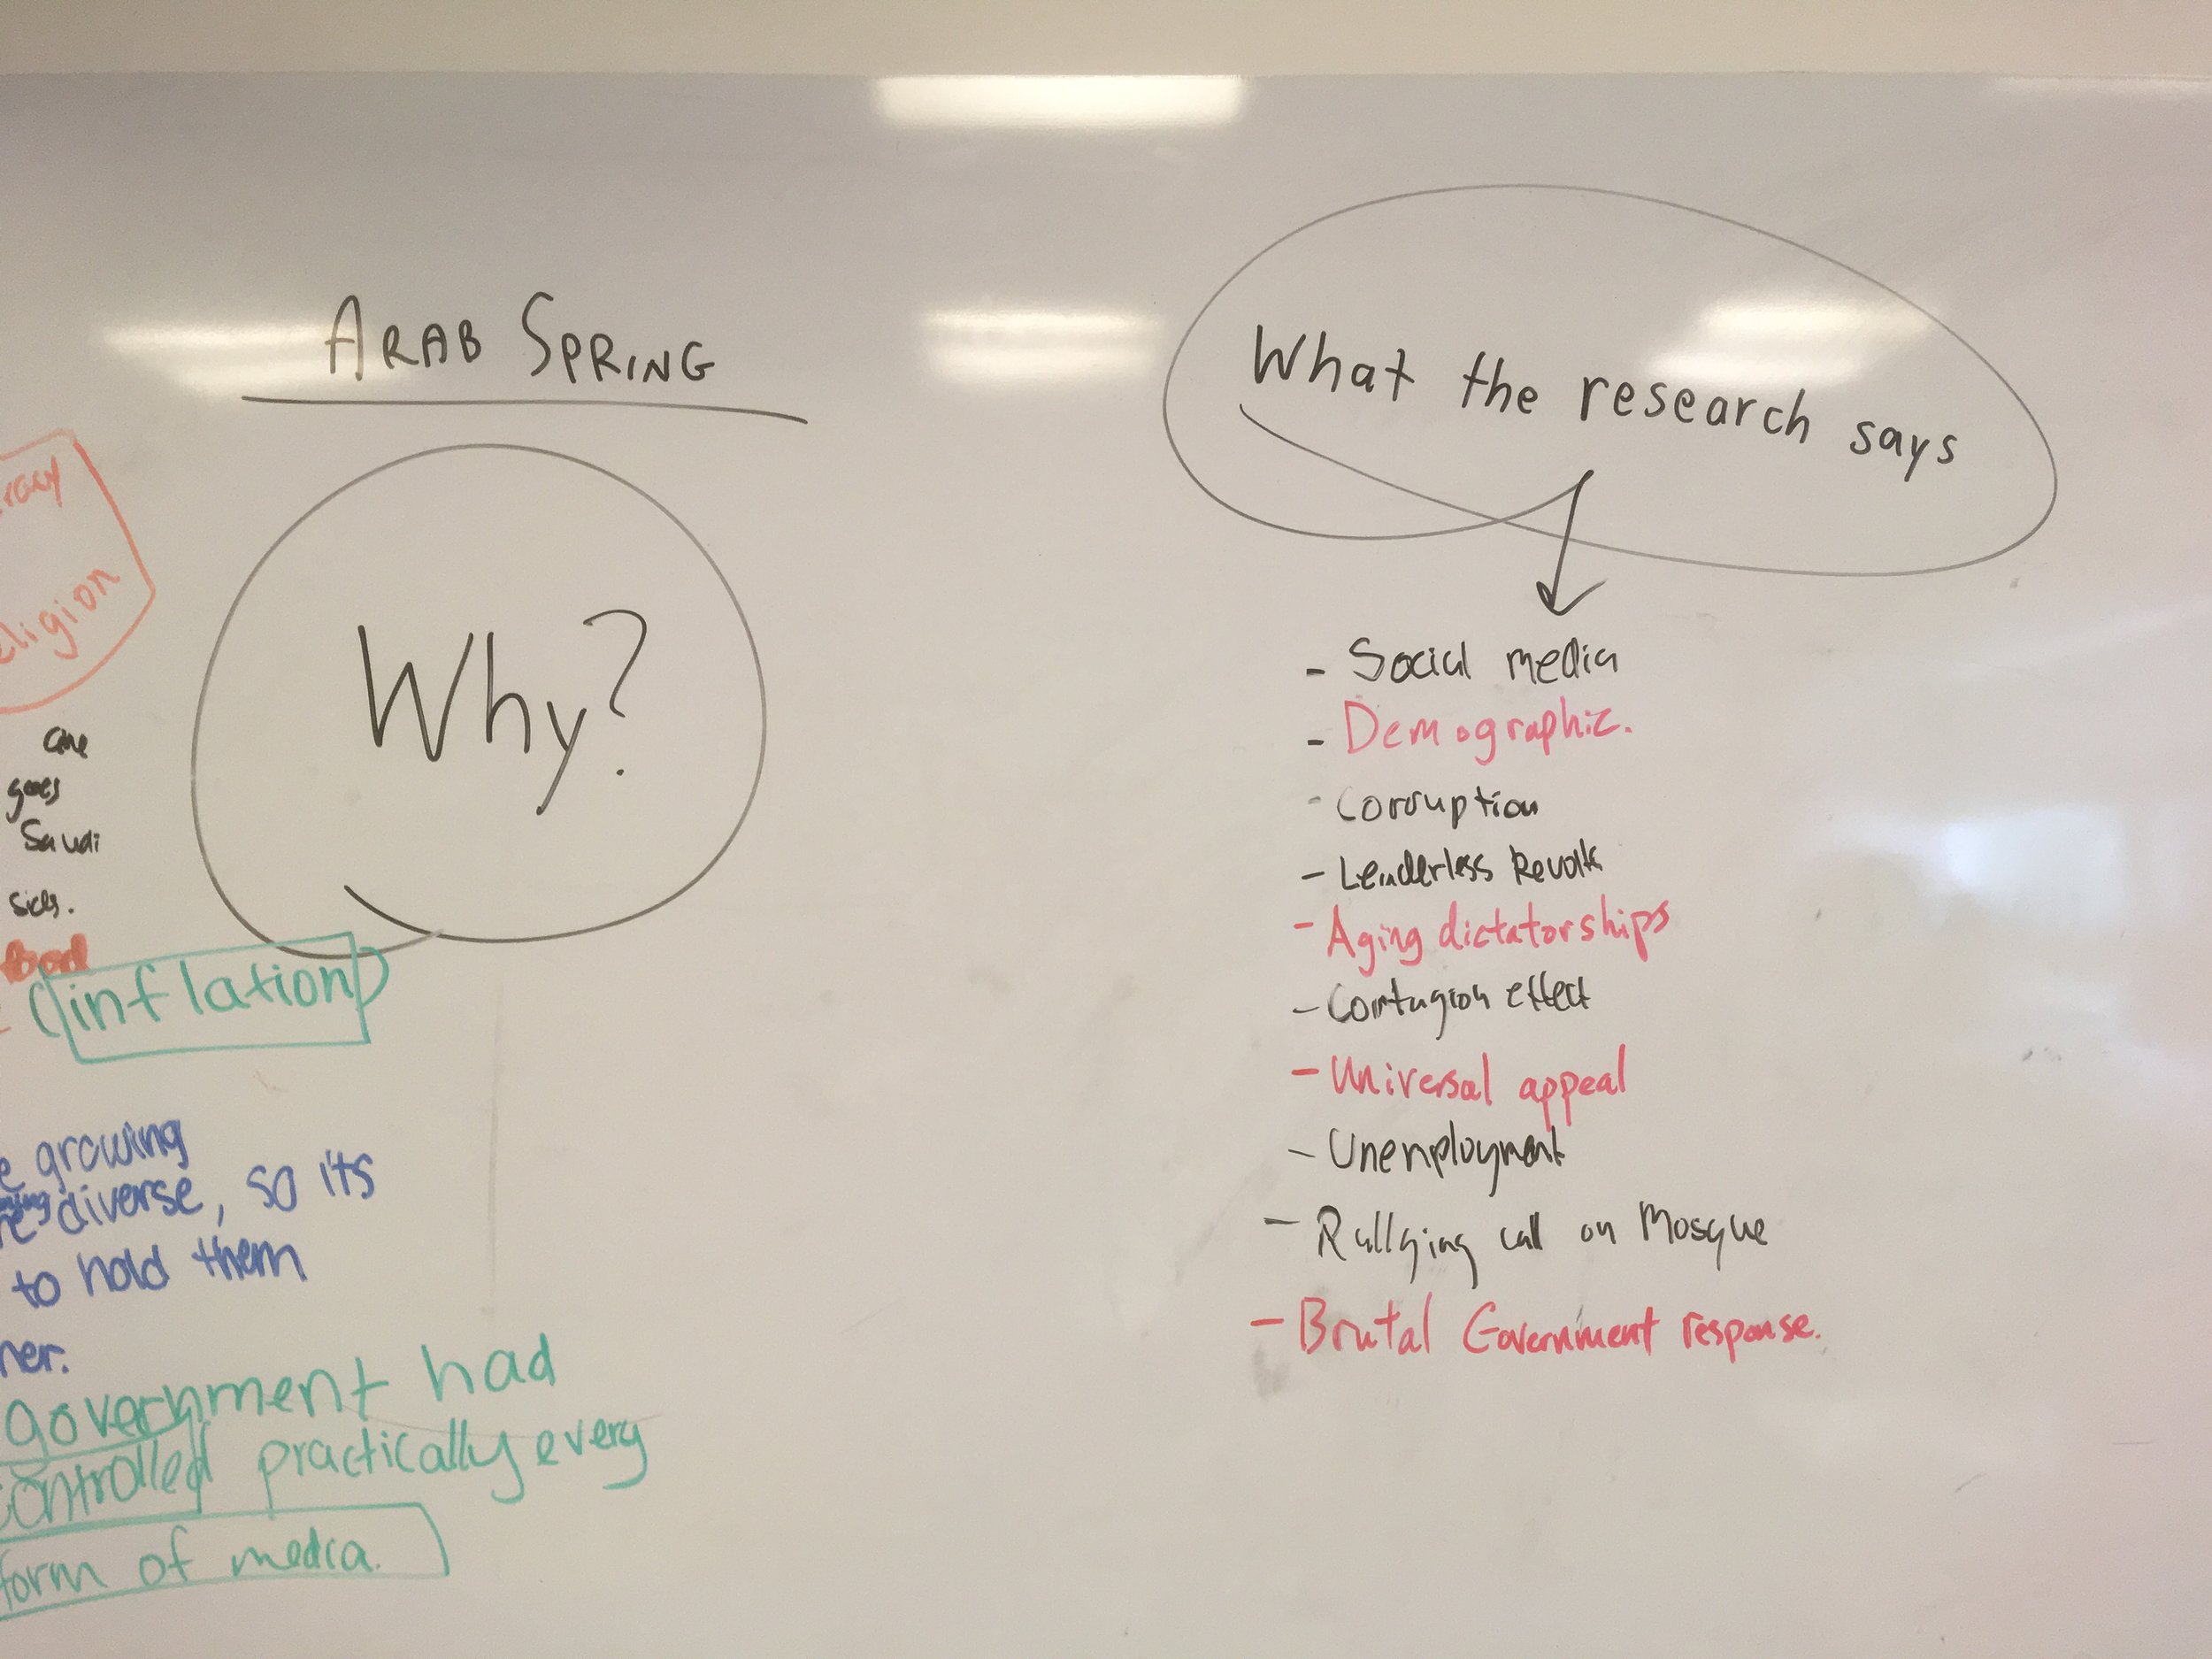 ARAB SPRING
Why?
What the research says
- Social media
- Demographic.
- Corruption
- Leaderless Revolts
- Aging dictatorships
- Contagion effect
- Universal appeal
- Unenployment
- Rallying call on Mosque
- Brutal Government response.
racy
eligion
goes
Saudi
food
(inflation)
e growing
diverse, so its
to hold them
ner.
government had
controlled practically every
form of media.